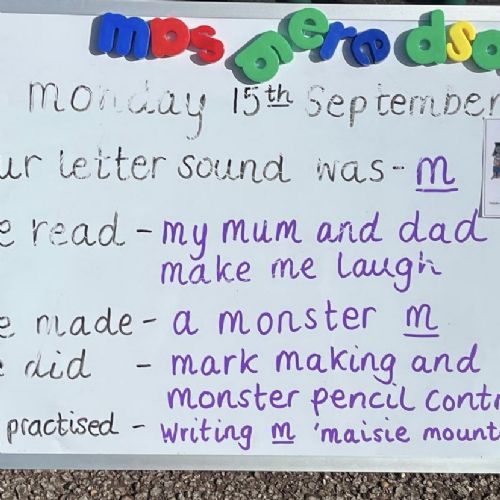 monday 15th September
ur letter sound was - m
e read - my mum and dad
make me laugh
e made - a monster m
e did - mark making and
monster pencil contr
practised - writing m 'maisie mount